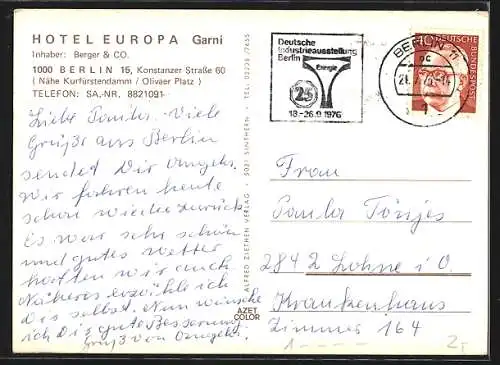 HOTEL EUROPA Garni
Inhaber: Berger & CO.
1000 BERLIN 15, Konstanzer Straße 60
( Nähe Kurfürstendamm / Olivaer Platz )
TELEFON: SA.-NR. 8821091
Liebe Paula. Viele
Grüße aus Berlin
sendet Dir
Wir fahren heute
schon wieder zurück
Es war sehr schön
und gutes Wetter
hatten wir auch
Näheres erzähle ich
Dir selbst. Nun wünsche
ich Dir gute Besserung
Gruß von
ALFRED ZIETHEN VERLAG · 5021 SINTHERN · TEL. 02238/7455
AZET
COLOR
Deutsche
Industrieausstellung
Berlin
Energie
25
18.-26.9.1976
BERLIN 11
DEUTSCHE
BUNDESPOST
Frau
Paula Tönjes
2842 Lohne i. O.
Krankenhaus
Zimmer 164